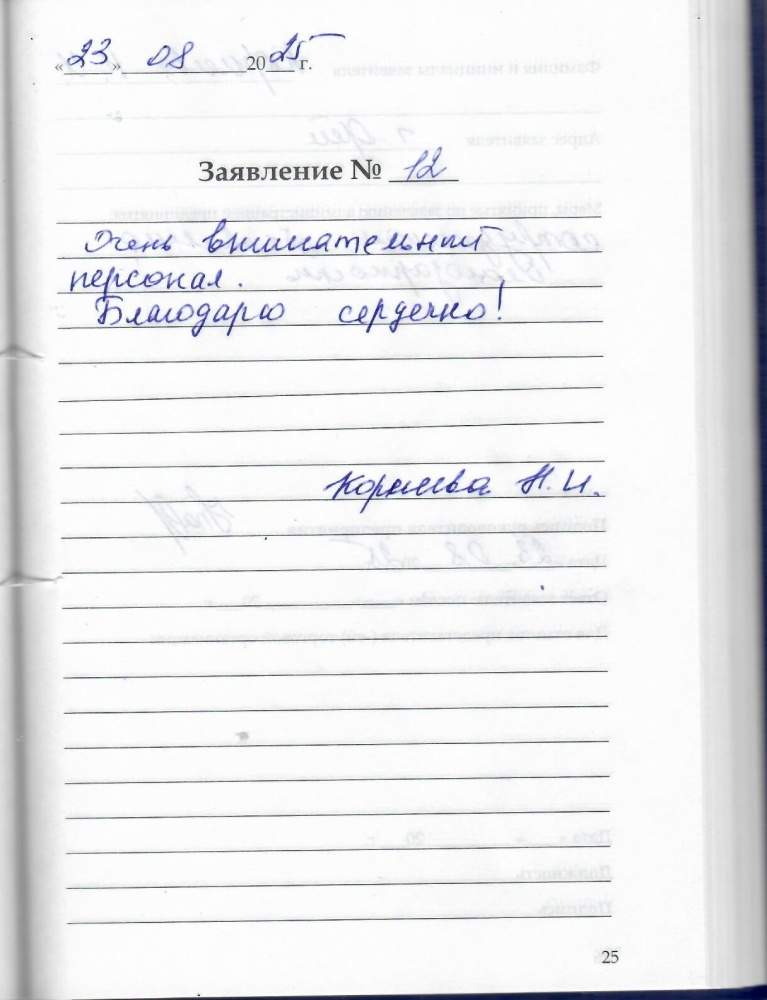 «23» 08 2025 г.
Заявление № 12
Очень внимательный
персонал.
Благодарю сердечно!
Н.И.
25